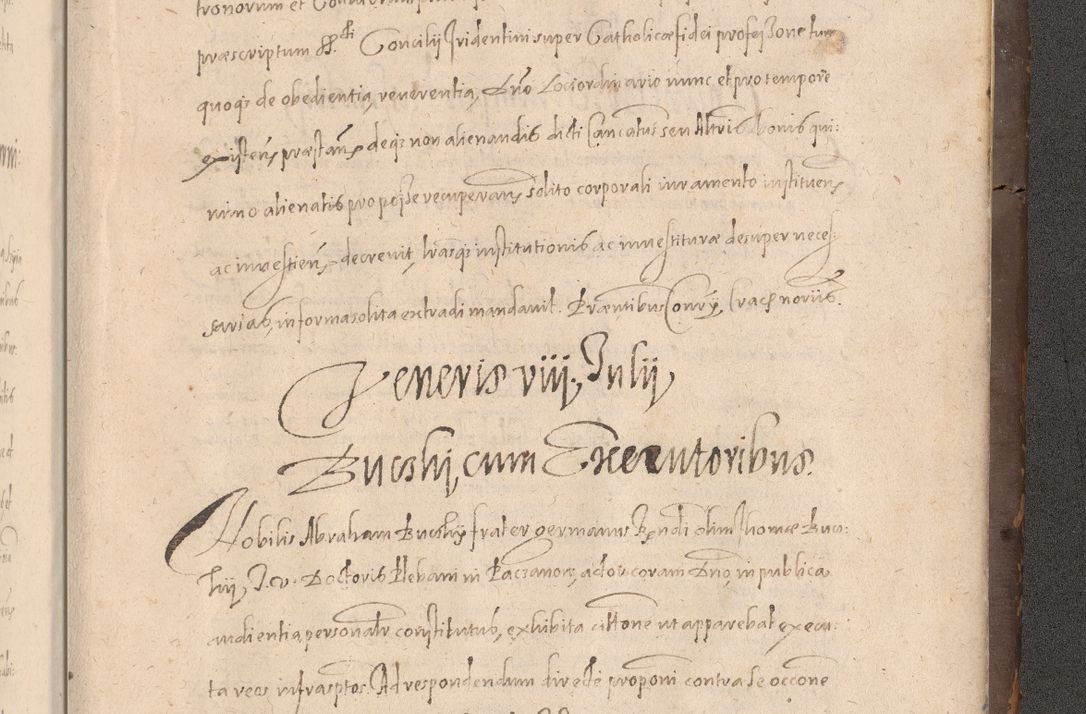 tronorum et
præscriptum SS.cti Concilij Tridentini super Catholicæ fidei professione tum
quoq; de obedientia, reuerentia, Dno Loci ordinario nunc et pro tempore
existen, præstan, deq; non alienandis dicti Cancatus seu Altris bonis qui:
nimo alienatis pro posse recuperan, solito corporali iuramento instituen,
ac inuestien, decreuit, lrasq; institutionis ac inuestituræ desuper neces:
sarias, in forma solita extradi mandauit. Præntibus
Veneris viij, Julij,
Bucskij, cum Executoribus.
Nobilis Abraham Bucskij frater germanus Rndi olim Thomæ Buc:
skij, J. V. Doctoris Plebani in Paczanow, actor coram Dno, in publica
audientia, personalr constitutus, exhibita cittone ut apparebat execu:
ta reos infrasptos. Ad respondendum directe proponi contra se occone